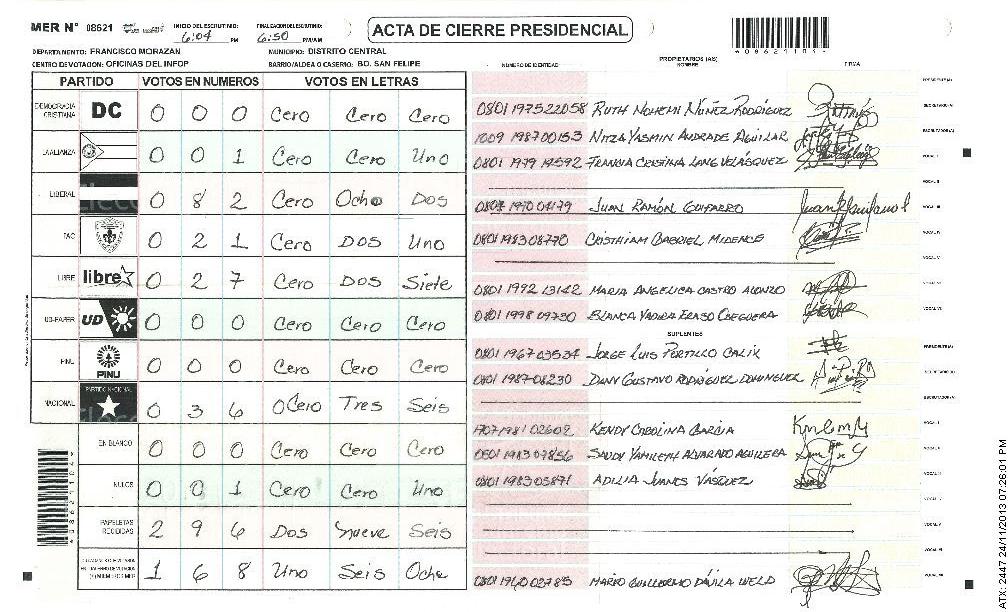 MER N° 08621 INICIO DEL ESCRUTINIO: 6:04 PM FINALIZACION DEL ESCRUTINIO: 6:50 PM/AM
ACTA DE CIERRE PRESIDENCIAL
DEPARTAMENTO: FRANCISCO MORAZAN MUNICIPIO: DISTRITO CENTRAL
CENTRO DE VOTACION: OFICINAS DEL INFOP BARRIO/ALDEA O CASERIO: BO. SAN FELIPE
PARTIDO VOTOS EN NUMEROS VOTOS EN LETRAS
DEMOCRACIA CRISTIANA DC 0 0 0 Cero Cero Cero
LA ALIANZA 0 0 1 Cero Cero Uno
LIBERAL 0 8 2 Cero Ocho Dos
PAC 0 2 1 Cero Dos Uno
LIBRE libre 0 2 7 Cero Dos Siete
UD-FAPER UD 0 0 0 Cero Cero Cero
PINU PINU 0 0 0 Cero Cero Cero
NACIONAL PARTIDO NACIONAL 0 3 6 0Cero Tres Seis
EN BLANCO 0 0 0 Cero Cero Cero
NULOS 0 0 1 Cero Cero Uno
PAPELETAS RECIBIDAS 2 9 6 Dos Nueve Seis
1 6 8 Uno Seis Ocho
NUMERO DE IDENTIDAD PROPIETARIOS (AS) NOMBRE FIRMA
PRESIDENTE(A)
0801 1975 22058 RUTH NOHEMI NUÑEZ RODRIGUEZ SECRETARIO(A)
1009 1987 00153 NITZA YASMIN ANDRADE AGUILAR ESCRUTADOR(A)
0801 1979 19592 FRANCIA CRISTINA LANG VELÁSQUEZ VOCAL I
VOCAL II
JUAN RAMÓN GUIFARRO VOCAL III
0801 1983 08770 CRISTHIAM GABRIEL MIDENCE VOCAL IV
VOCAL V
0801 1992 13142 MARIA ANGELICA CASTRO ALONZO VOCAL VI
0801 1998 09730 BLANCA YADIRA ERASO VOCAL VII
SUPLENTES
0801 1967 03534 JORGE LUIS PORTILLO CALIX PRESIDENTE(A)
0801 1987 08230 DANY GUSTAVO RODRIGUEZ DOMINGUEZ SECRETARIO(A)
ESCRUTADOR(A)
1707 1981 02602 KENDY CAROLINA GARCIA VOCAL I
0501 1983 07856 SAUDY YAMILETH ALVARADO AGUILERA VOCAL II
0801 1983 05891 ADILIA JUANES VÁSQUEZ VOCAL III
VOCAL IV
VOCAL V
VOCAL VI
MARIO GUILLERMO DÁVILA WELD VOCAL VII
ATX 2447 24/11/2013 07:26:01 PM